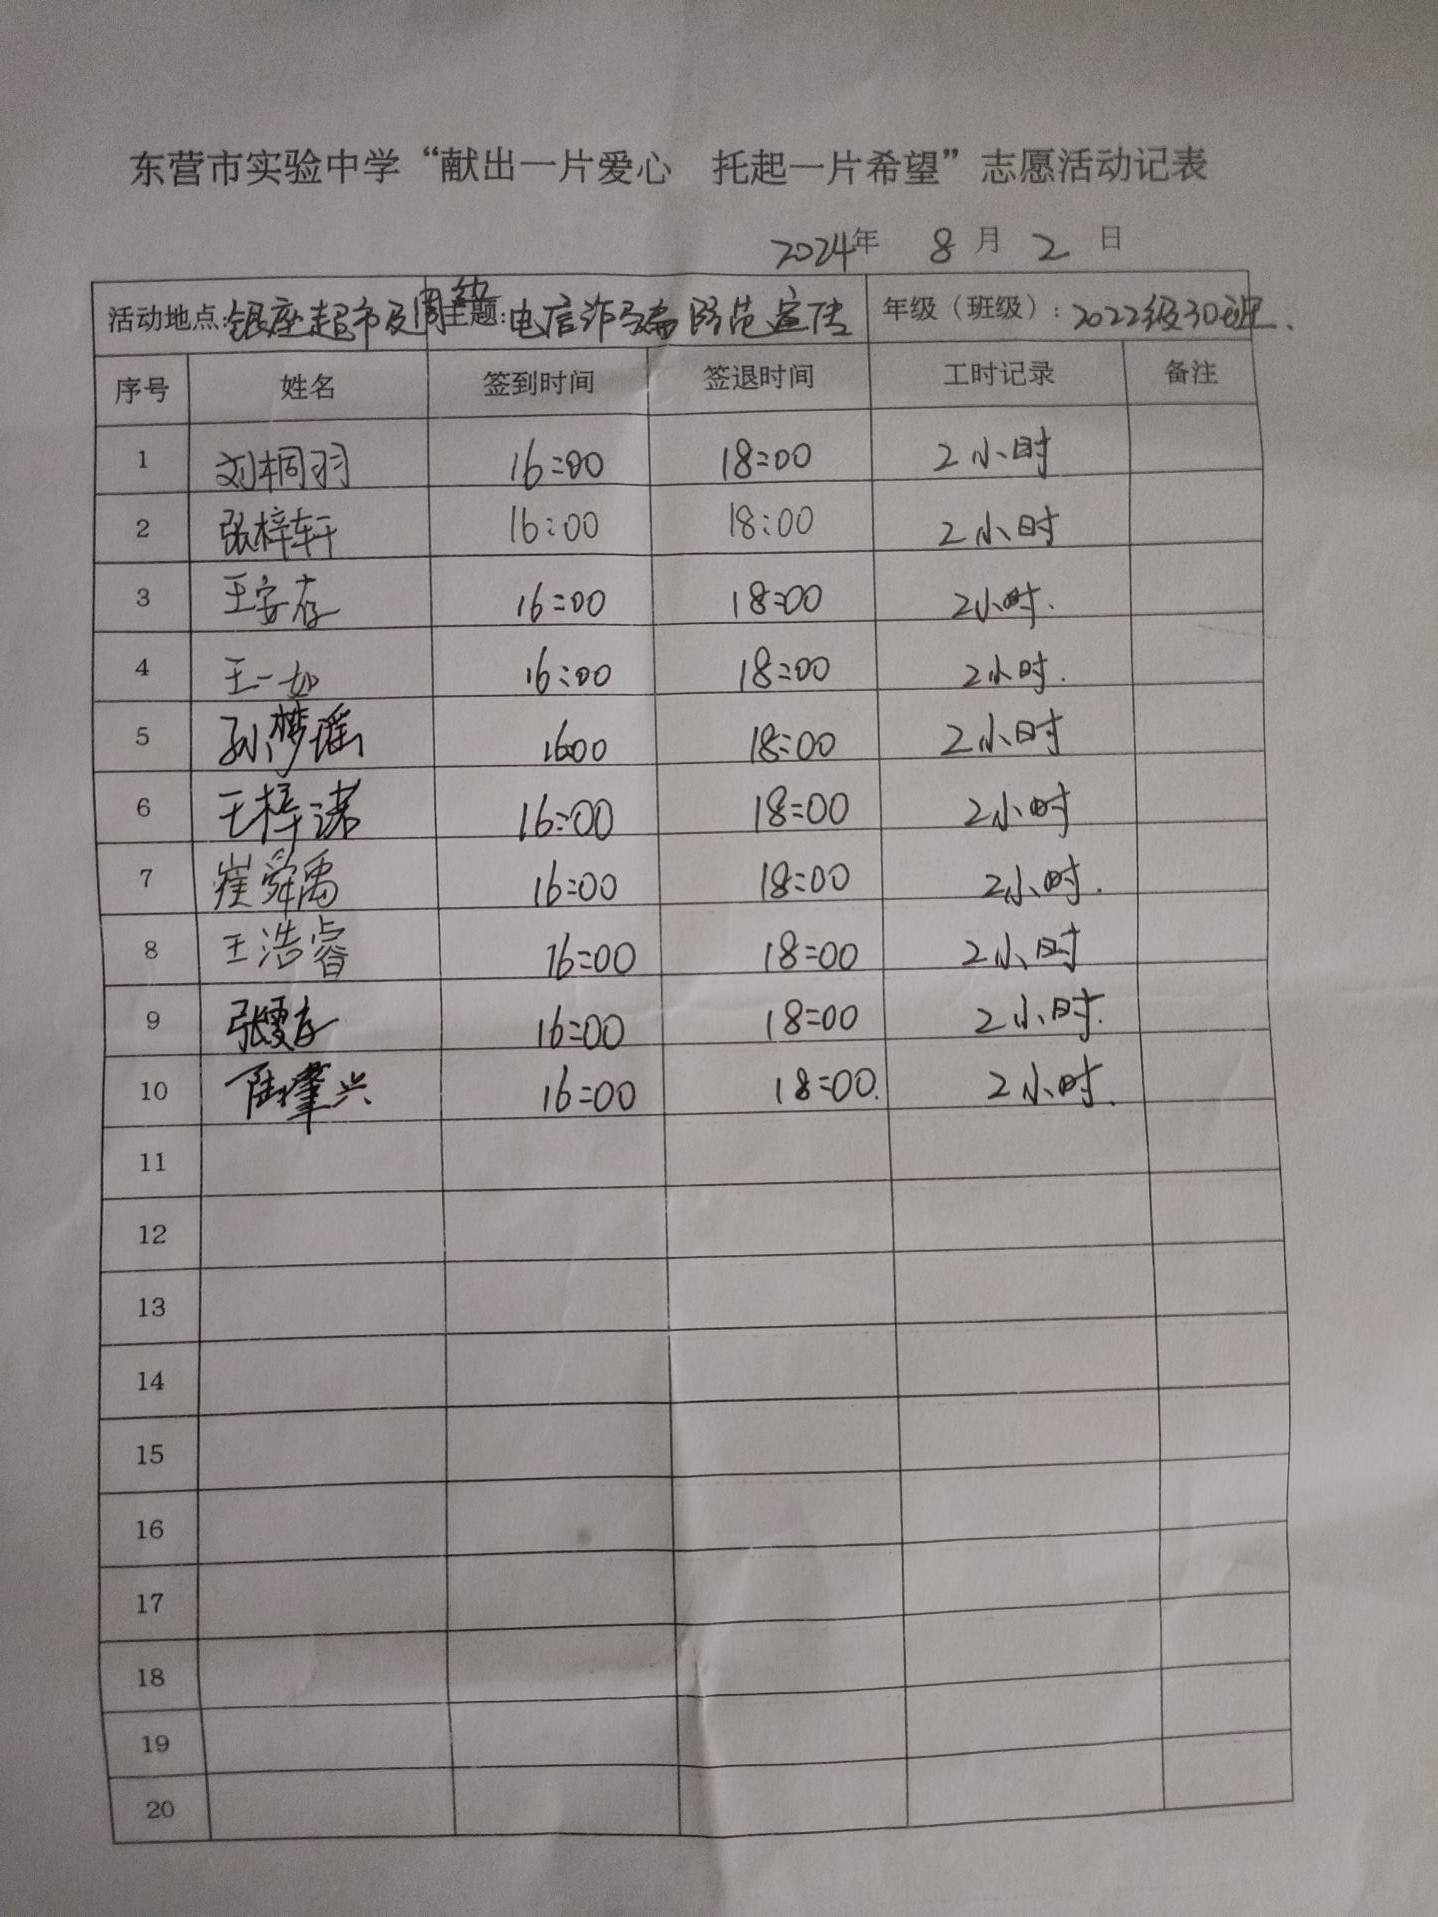 东营市实验中学“献出一片爱心 托起一片希望”志愿活动记表
2024年 8 月 2 日
活动地点:银座超市及周边 主题:电信诈骗防范宣传 年级（班级）:2022级30班.
序号 姓名 签到时间 签退时间 工时记录 备注
1 刘桐羽 16:00 18:00 2小时
2 张梓轩 16:00 18:00 2小时
3 王安存 16:00 18:00 2小时.
4 王一如 16:00 18:00 2小时.
5 孙梦瑶 1600 18:00 2小时
6 王梓诺 16:00 18:00 2小时
7 崔舜禹 16:00 18:00 2小时.
8 王浩睿 16:00 18:00 2小时
9 16:00 18:00 2小时.
10 陆肇兴 16:00 18:00. 2小时.
11
12
13
14
15
16
17
18
19
20